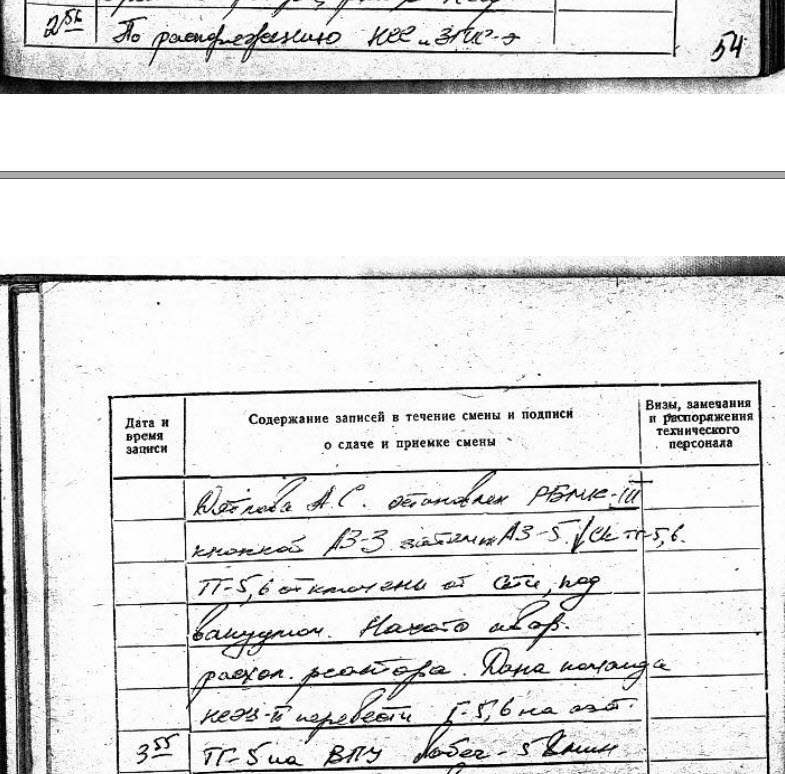 2 56 По распоряжению НСС и ЗГИС-э
54
Дата и время записи
Содержание записей в течение смены и подписи
о сдаче и приемке смены
Визы, замечания и распоряжения технического персонала
Дятлова А.С. остановлен РБМК-III
кнопкой АЗ-3 затем АЗ-5. СК ТГ-5,6.
ТГ-5,6 отключены от сети, под
вакуумом. Начато авар.
расхол. реактора. Дана команда
перевести Г-5,6 на азот.
3 55 ТГ-5 на ВПУ - 5